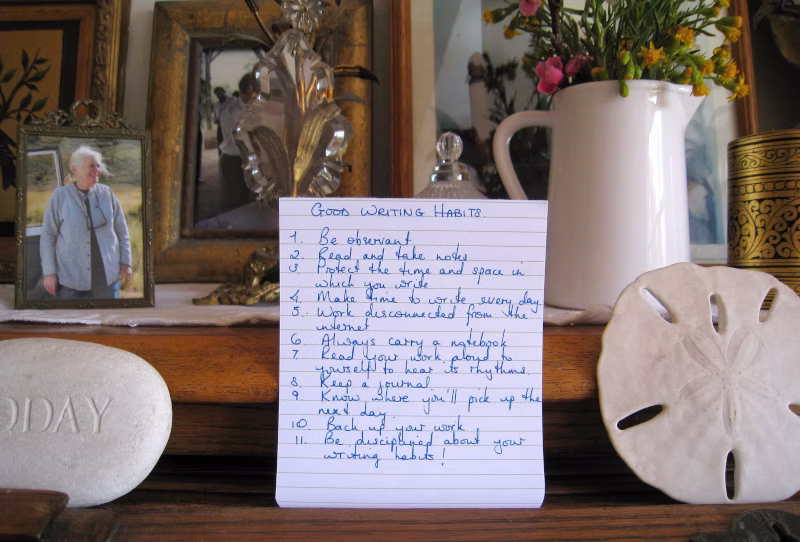 GOOD WRITING HABITS.
1. Be observant
2. Read and take notes
3. Protect the time and space in
which you write
4. Make time to write every day.
5. Work disconnected from the
internet
6. Always carry a notebook
7. Read your work aloud to
yourself to hear its rhythms.
8. Keep a journal
9. Know where you'll pick up the
next day
10. Back up your work
11. Be disciplined about your
writing habits!
ODAY